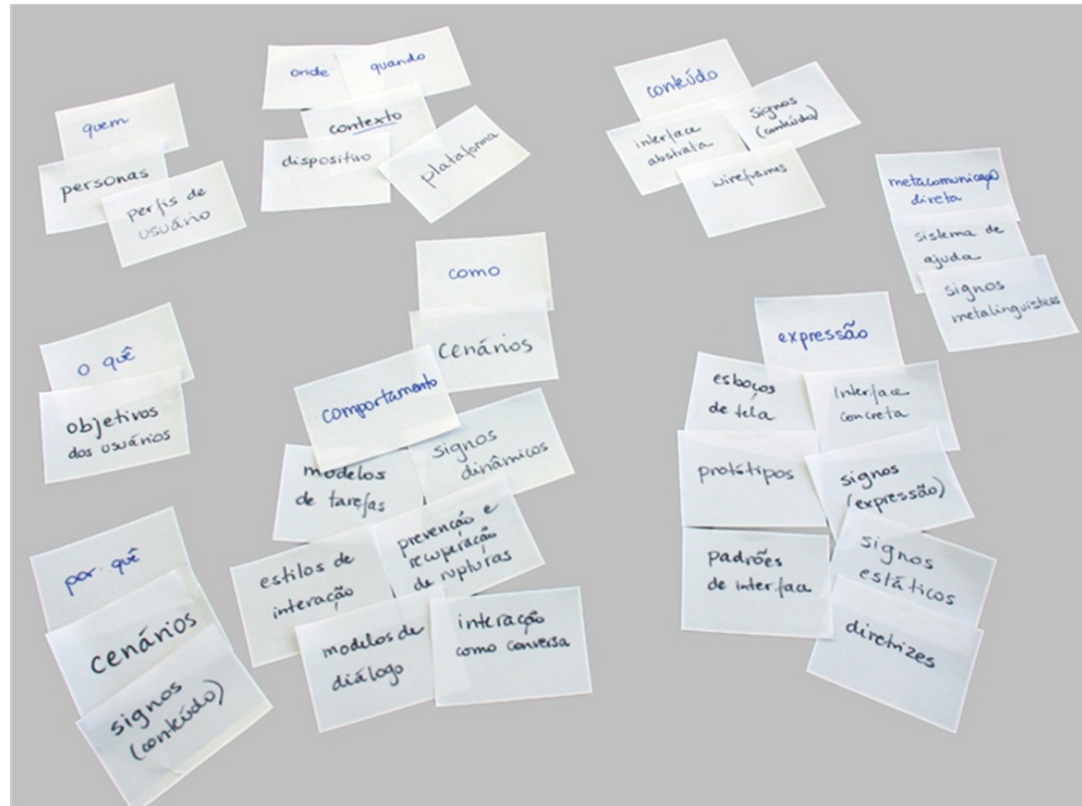 quem
personas
perfis de
usuário
onde
quando
contexto
dispositivo
plataforma
conteúdo
interface
abstrata
signos
(conteúdo)
wireframes
metacomunicação
direta
sistema de
ajuda
signos
metalinguísticos
o quê
objetivos
dos usuários
como
cenários
comportamento
modelos
de tarefas
signos
dinâmicos
estilos de
interação
prevenção e
recuperação
de rupturas
modelos de
diálogo
interação
como conversa
expressão
esboços
de tela
interface
concreta
protótipos
signos
(expressão)
padrões
de interface
signos
estáticos
diretrizes
por quê
cenários
signos
(conteúdo)